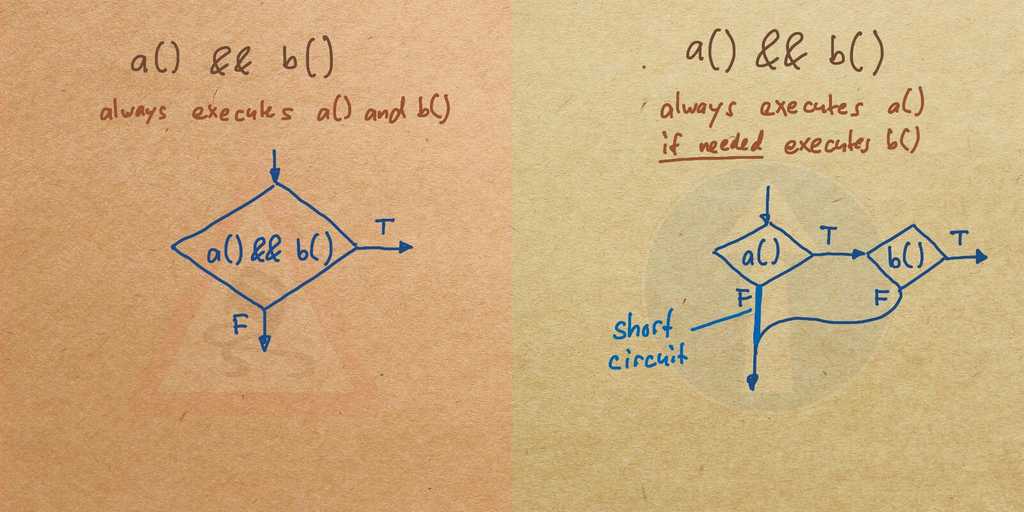 a() && b()
always executes a() and b()
a() && b()
T
F
a() && b()
always executes a()
if needed executes b()
a()
T
b()
T
F
F
short
circuit